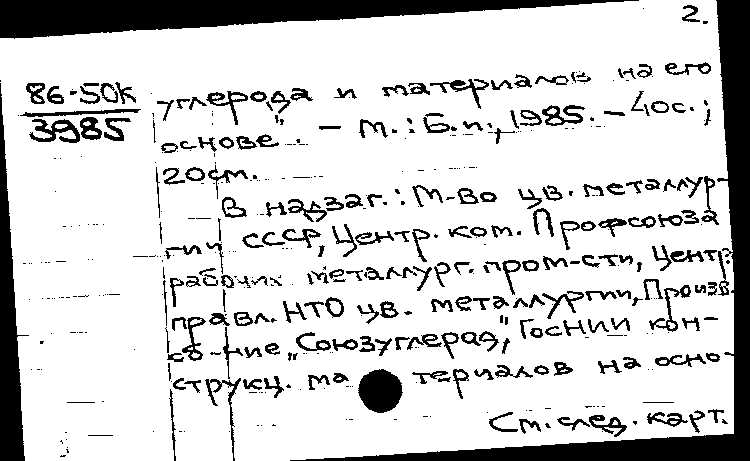 2.
86-50к
3985
углерода и материалов на его
основе". – М.: Б.и., 1985. – 40с.;
20см.
В надзаг.: М-во цв. металлур-
гии СССР, Центр. ком. Профсоюза
рабочих металлург. пром-сти, Центр.
правл. НТО цв. металлургии, Произв.
об-ние „Союзуглерод", ГосНИИ кон-
струкц. материалов на осно-
См. след. карт.